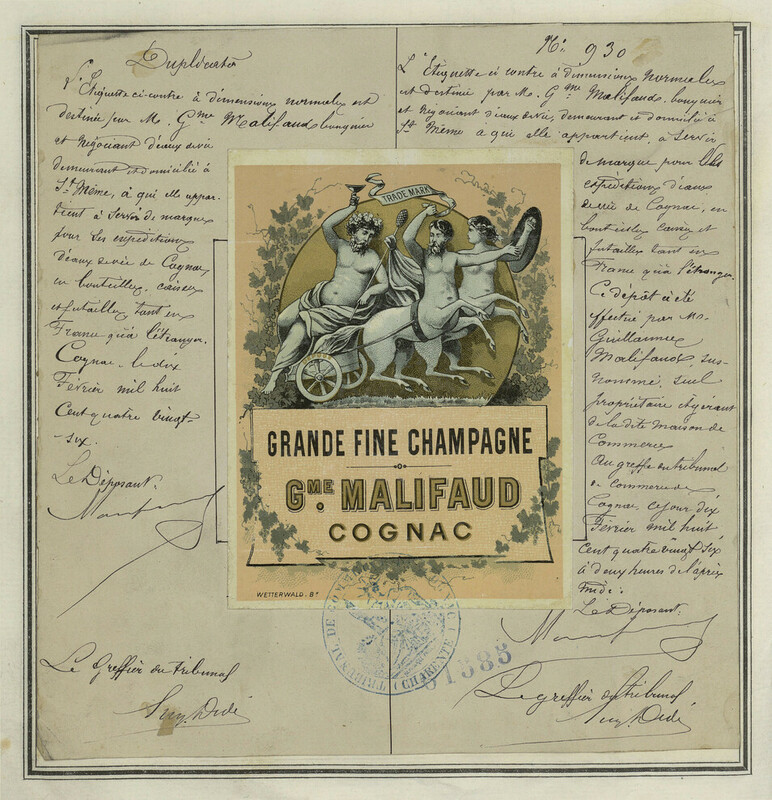 Duplicata
L'Étiquette ci-contre à dimensions normales est
destinée par Mr. Gme Malifaud, banquier
et Négociant d'eaux de vie
demeurant et domicilié à
St. Même, à qui elle appar-
tient à servir de marque
pour ses expéditions
d'eaux de vie de Cognac
en bouteilles, caisses
et futailles tant en
France qu'à l'étranger.
Cognac le dix
Février mil huit
Cent quatre vingt-
six.
Le Déposant.
Le Greffier du tribunal
No. 930
L'Étiquette ci contre à dimensions normales
est destinée par Mr. Gme Malifaud, banquier
et Négociant d'eaux de vie, demeurant et domicilié à
St Même à qui elle appartient, à servir
de marque pour les
expéditions d'eaux
de vie de Cognac, en
bouteilles caisses et
futailles tant en
France qu'à l'étranger.
Ce dépôt a été
effectué par Mr.
Guillaume
Malifaud, sus-
nommé, seul
propriétaire et gérant
de la dite maison de
Commerce
Au greffe du tribunal
de commerce de
Cognac, ce jour dix
Février mil huit
cent quatre vingt six
à deux heures de l'après
midi.
Le Déposant.
Le greffier du tribunal
TRADE MARK
GRANDE FINE CHAMPAGNE
GME. MALIFAUD
COGNAC
WETTERWALD. Bx
TRIBUNAL DE COMMERCE
(CHARENTE)
01585